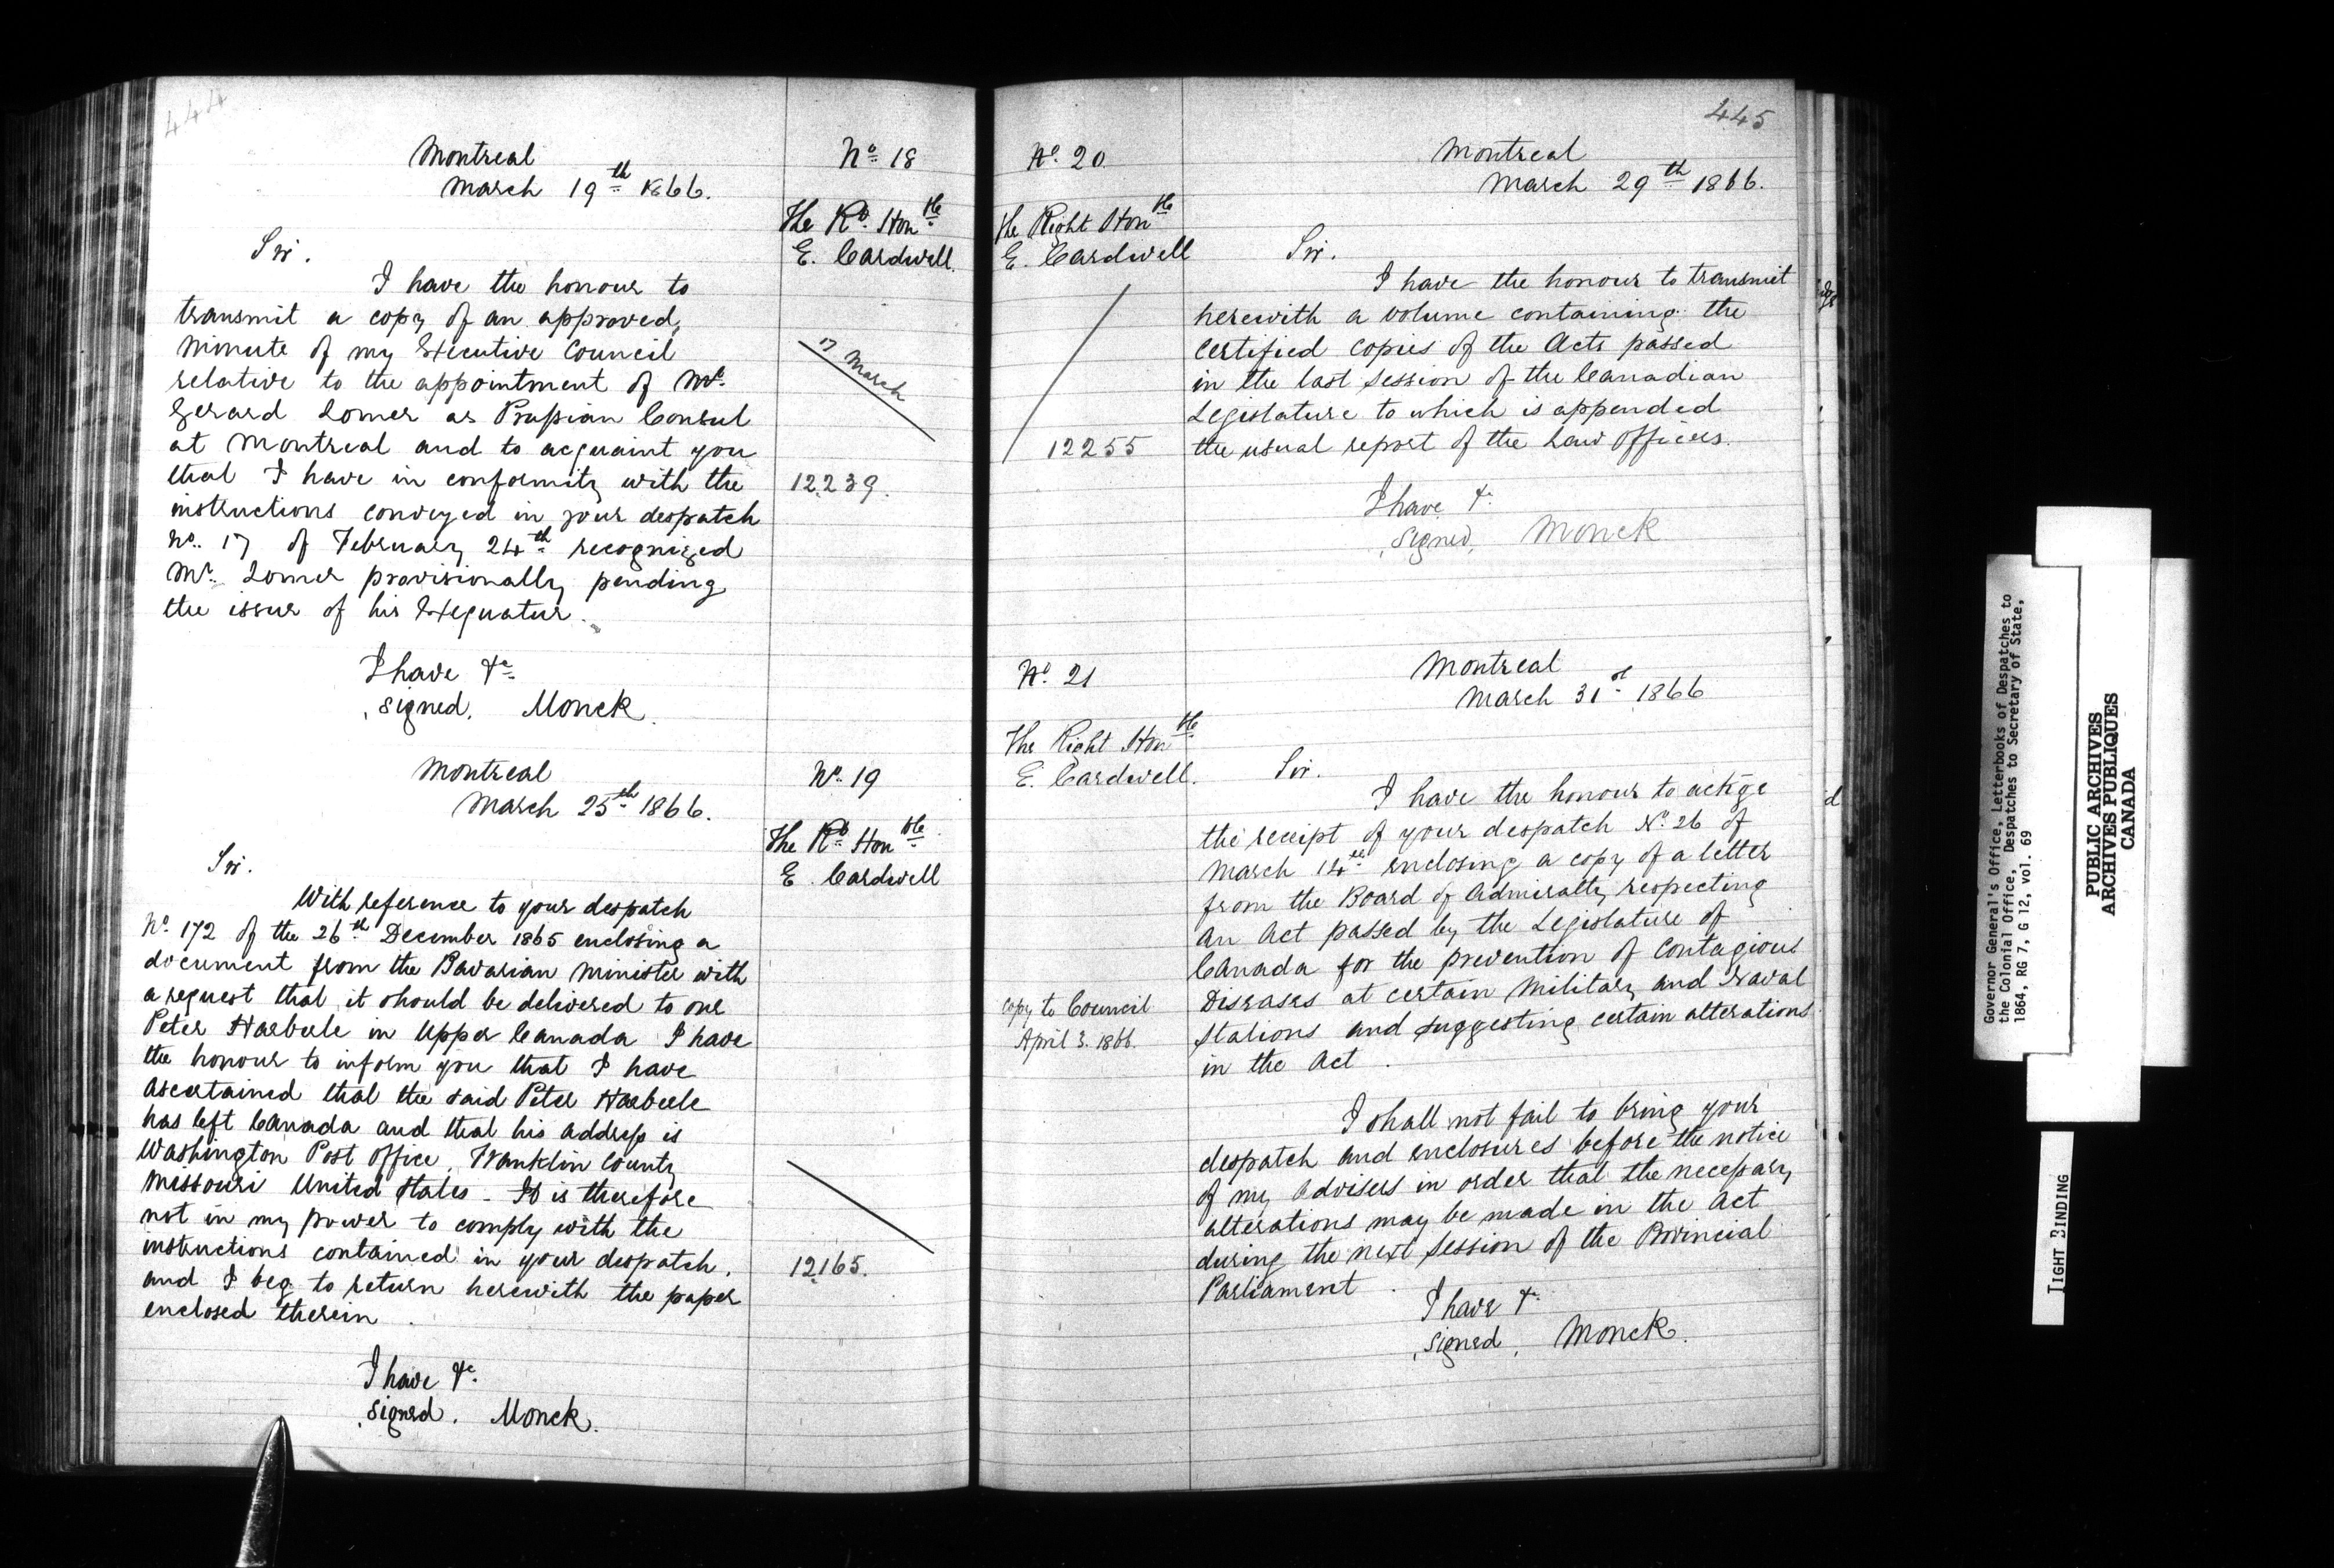 444
Montreal
March 19th 1866.
No 18
The Rt. Honble
E. Cardwell.
Sir.
I have the honour to
transmit a copy of an approved
Minute of my Executive Council
relative to the appointment of Mr.
Gerard Lomer as Prussian Consul
at Montreal and to acquaint you
that I have in conformity with the
instructions conveyed in your despatch
No. 17 of February 24th recognized
Mr. Lomer provisionally pending
the issue of his Exequatur.
17 March
12239.
I have &c
signed. Monck.
Montreal
March 25th 1866.
No. 19
The Rt Honble
E. Cardwell
Sir.
With reference to your despatch
No 172 of the 26th December 1865 enclosing a
document from the Bavarian Minister with
a request that it should be delivered to one
Peter Haeberle in Upper Canada I have
the honour to inform you that I have
ascertained that the said Peter Haeberle
has left Canada and that his address is
Washington Post Office, Franklin County
Missouri United States - It is therefore
not in my power to comply with the
instructions contained in your despatch.
and I beg to return herewith the paper
enclosed therein.
12165.
I have &c.
signed. Monck.
445
No. 20
Montreal
March 29th 1866.
The Right Honble
E. Cardwell
Sir.
I have the honour to transmit
herewith a volume containing the
certified copies of the Acts passed
in the last Session of the Canadian
Legislature to which is appended
the usual report of the Law Officers.
12255
I have &c.
signed, Monck
No. 21
Montreal
March 31st 1866
The Right Honble
E. Cardwell.
Sir.
I have the honour to ackge
the receipt of your despatch No. 26 of
March 14th enclosing a copy of a letter
from the Board of Admiralty respecting
an Act passed by the Legislature of
Canada for the prevention of Contagious
Diseases at certain Military and Naval
Stations and suggesting certain alterations
in the Act.
copy to Council
April 3. 1866.
I shall not fail to bring your
despatch and enclosures before the notice
of my advisers in order that the necessary
alterations may be made in the Act
during the next Session of the Provincial
Parliament.
I have &c.
signed, Monck.
Governor General's Office, Letterbooks of Despatches to
the Colonial Office, Despatches to Secretary of State,
1864, RG 7, G 12, vol. 69
PUBLIC ARCHIVES
ARCHIVES PUBLIQUES
CANADA
TIGHT BINDING